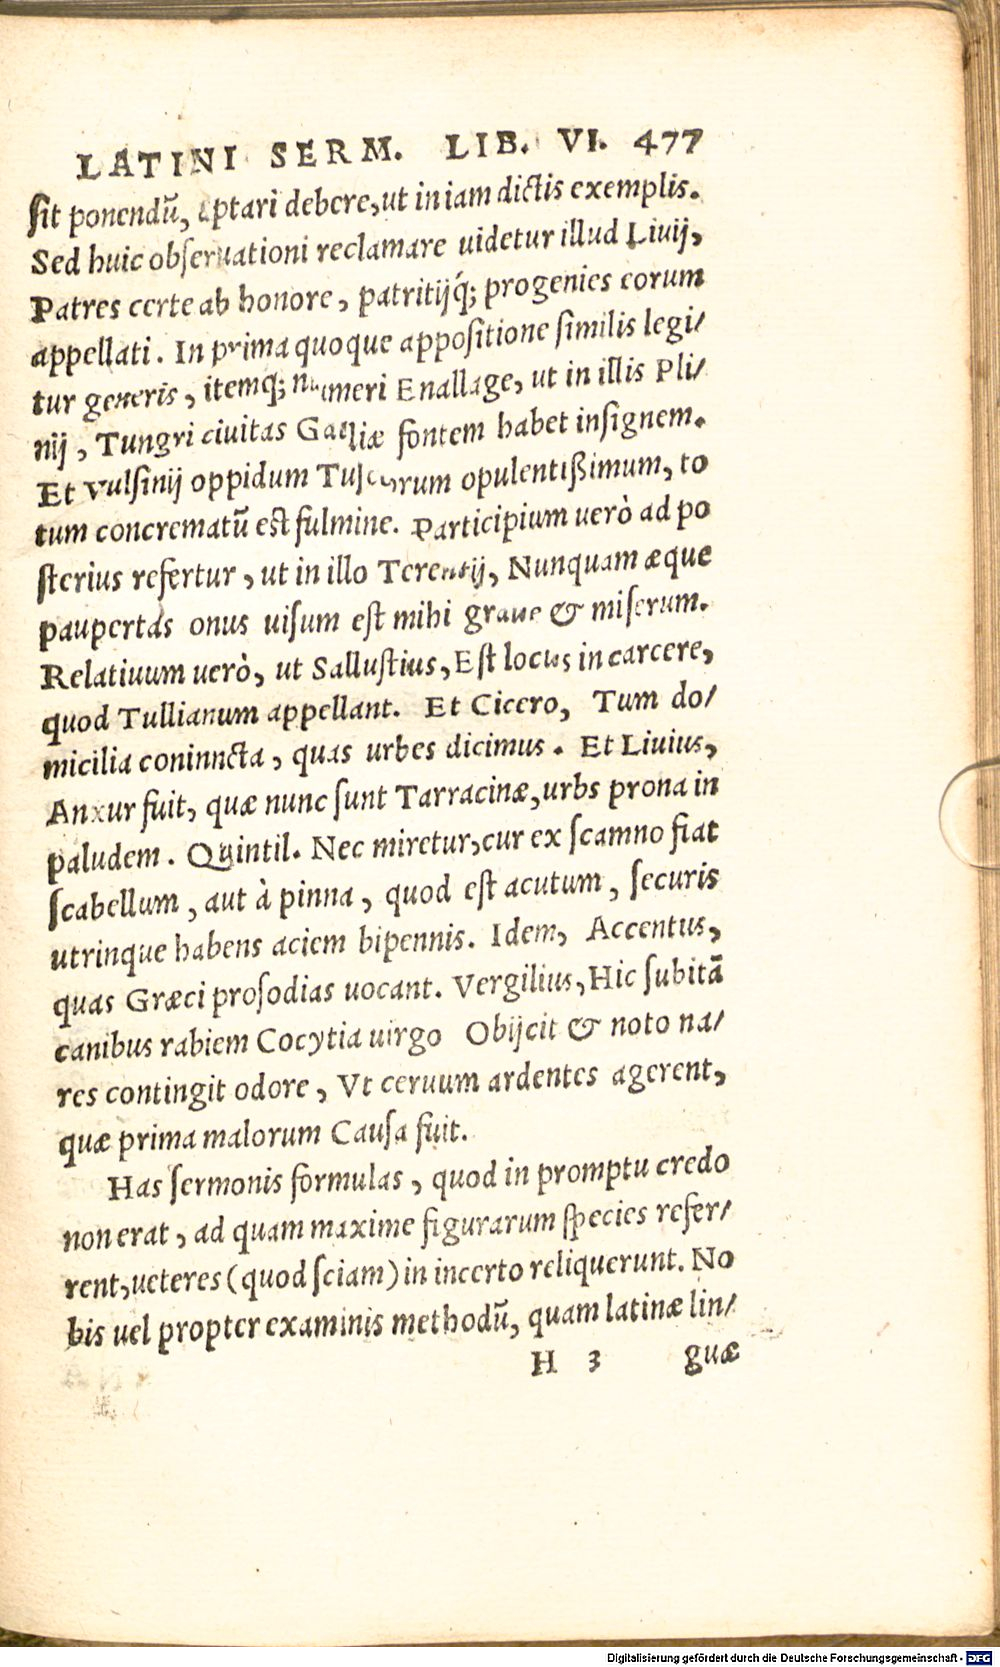 LATINI SERM. LIB. VI. 477
sit ponendũ, aptari debere, ut in iam dictis exemplis.
Sed huic obseruationi reclamare uidetur illud Liuij,
Patres certe ab honore, patritijq́; progenies eorum
appellati. In prima quoque appositione similis legi/
tur generis, itemq́; numeri Enallage, ut in illis Pli/
nij, Tungri ciuitas Galliæ fontem habet insignem.
Et Vulsinij oppidum Tuscorum opulentißimum, to
tum concrematũ est fulmine. Participium uerò ad po
sterius refertur, ut in illo Terentij, Nunquam æque
paupertas onus uisum est mihi graue & miserum.
Relatiuum uerò, ut Sallustius, Est locus in carcere,
quod Tullianum appellant. Et Cicero, Tum do/
micilia coninncta, quas urbes dicimus. Et Liuius,
Anxur fuit, quæ nunc sunt Tarracinæ, urbs prona in
paludem. Quintil. Nec miretur, cur ex scamno fiat
scabellum, aut à pinna, quod est acutum, securis
utrinque habens aciem bipennis. Idem, Accentus,
quas Græci prosodias uocant. Vergilius, Hic subitã
canibus rabiem Cocytia uirgo Obijcit & noto na/
res contingit odore, Vt ceruum ardentes agerent,
quæ prima malorum Causa fuit.
Has sermonis formulas, quod in promptu credo
non erat, ad quam maxime figurarum species refer/
rent, ueteres (quod sciam) in incerto reliquerunt. No
bis uel propter examinis methodũ, quam latinæ lin/
H 3 guæ
Digitalisierung gefördert durch die Deutsche Forschungsgemeinschaft - DFG